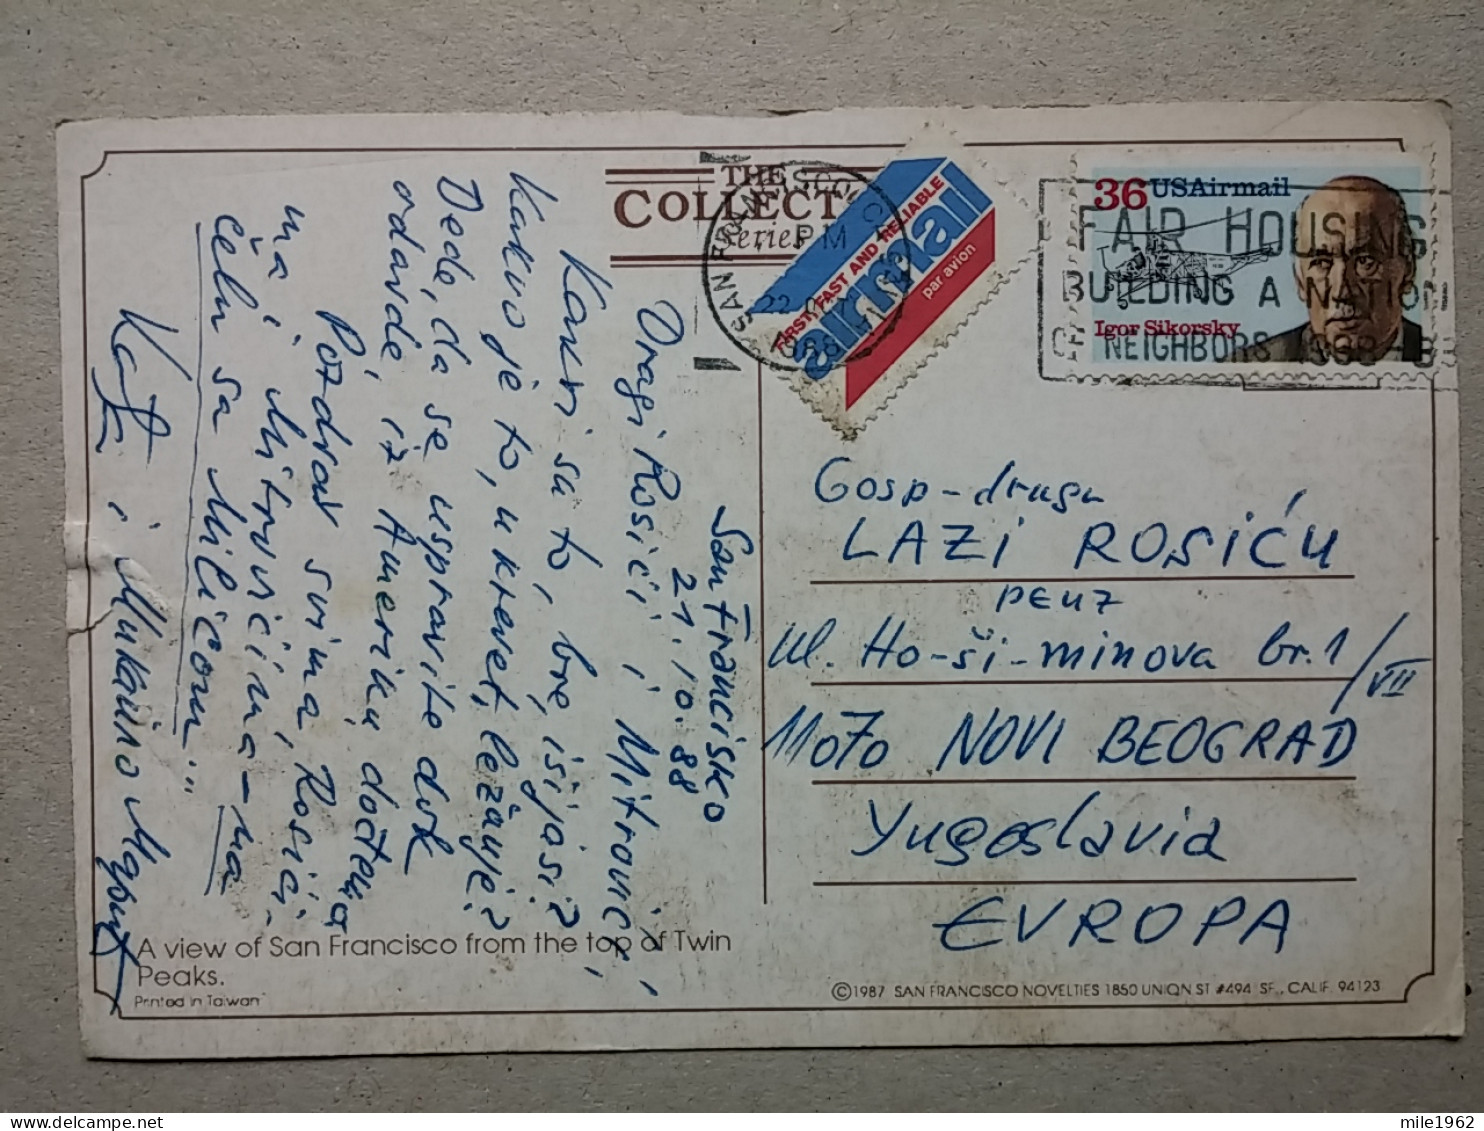 THE
COLLECT
Series
SAN FRANCISCO CA
PM
22 OCT
1988
FIRST, FAST AND RELIABLE
airmail
par avion
36 USAirmail
Igor Sikorsky
FAIR HOUSING
BUILDING A NATION
OF NEIGHBORS 1968-88
San Francisko
21.10.88
Dragi Rosići i Mitrovići,
Kakvi sa to, bre, išijasi?
Kakvo je to, u krevet, ležanje?
Deda, da se uspravite dok
odavde, iz Amerike, dođem
Pozdrav svima, Rosići-
ma i Mitrovićima - na
čelu sa Milicom"
Kaća i Vukašin
Gosp-drugu
LAZI ROSIĆU
penz
Ul. Ho-ši-minova br. 1/VII
11070 NOVI BEOGRAD
Yugoslavia
EVROPA
A view of San Francisco from the top of Twin
Peaks.
Printed in Taiwan
©1987 SAN FRANCISCO NOVELTIES 1850 UNION ST #494 SF., CALIF. 94123
mile1962